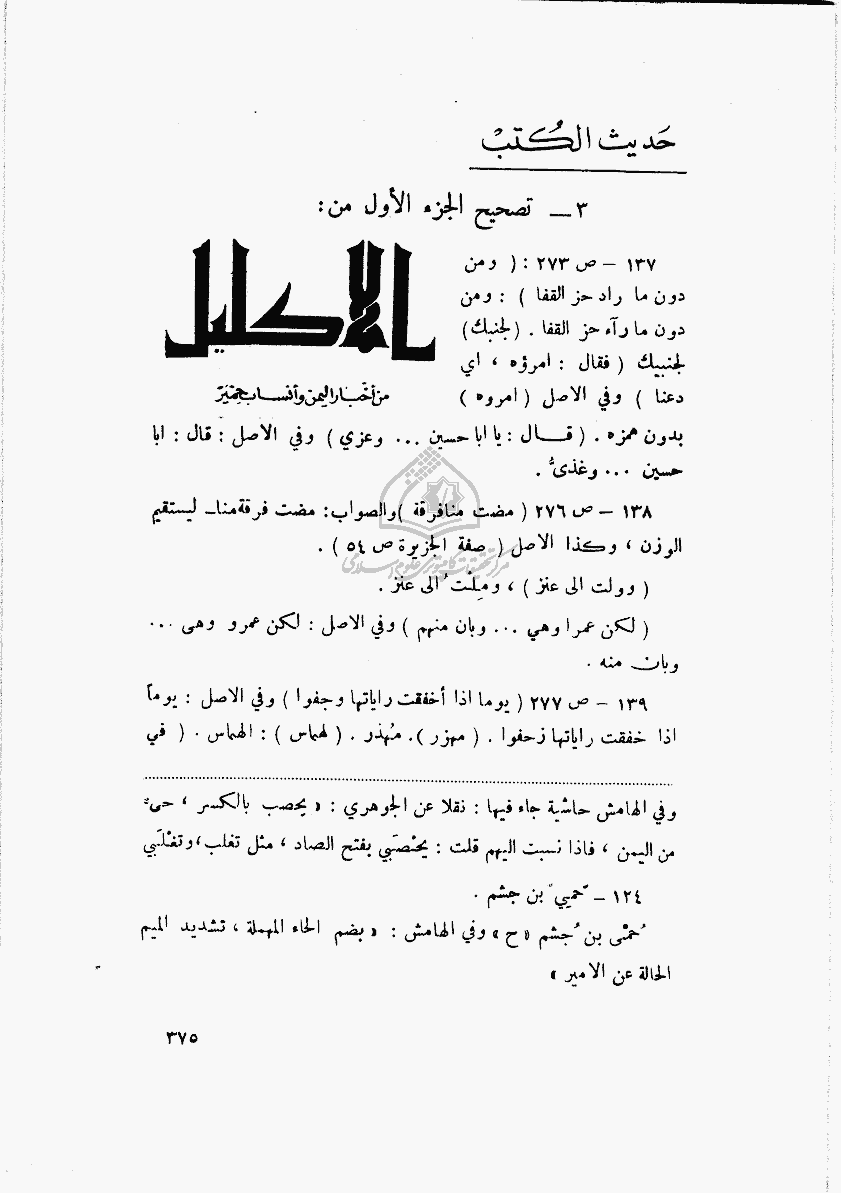 حَديث الكُتبْ
٣ — تصحيح الجزء الأول من:
الإكليل
من أخبار اليمن وأنساب حِمْيَر
١٣٧ – ص ٢٧٣ : ( ومن
دون ما راد حز القفا ) : ومن
دون ما رآء حز القفا . (لجنبك)
لجنبيك ( فقال : امرؤه ، اي
دعنا ) وفي الاصل ( امروه )
بدون همزه . ( قــال : يا ابا حسين ... وعزي ) وفي الاصل : قال : ابا
حسين ... وغذىُّ .
١٣٨ – ص ٢٧٦ ( مضت منافرقة )والصواب: مضت فرقةمنا– ليستقيم
الوزن ، وكذا الاصل ( صفة الجزيرة ص ٥٤ ) .
( وولت الى عنز ) ، ومِلْتُ الى عنز .
( لكن عمرا وهي ... وبان منهم ) وفي الاصل : لكن عمرو وهى ...
وبان منه .
١٣٩ – ص ٢٧٧ ( يوما اذا أخفقت راياتها وجفوا ) وفي الاصل : يوماً
اذا خفقت راياتها زحفوا . ( مهزر ). مُهذر . ( لهماس ) : الهماس . ( في
وفي الهامش حاشية جاء فيها : نقلا عن الجوهري : « يحصب بالكسر ، حيٌّ
من اليمن ، فاذا نسبت اليهم قلت : يحْصَبي بفتح الصاد ، مثل تغلب، وتغْلَبي
١٢٤ – حميي بن جشم .
حُمّى بن جُشم «ح» وفي الهامش : « بضم الحاء المهملة ، تشديد الميم
الحالة عن الامير »
٣٧٥
مركز تحقيقات كامپيوتري علوم اسلامي